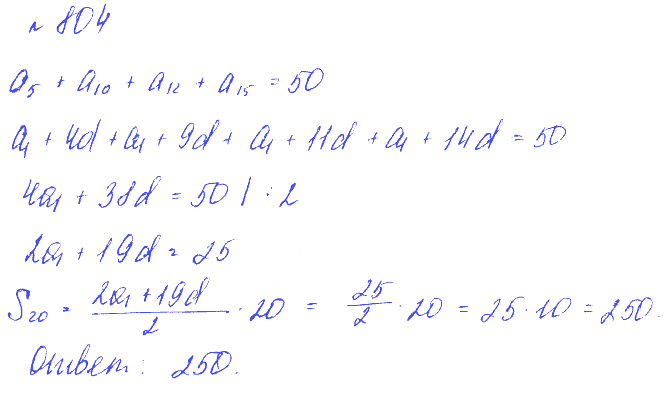 № 804
a₅ + a₁₀ + a₁₂ + a₁₅ = 50
a₁ + 4d + a₁ + 9d + a₁ + 11d + a₁ + 14d = 50
4a₁ + 38d = 50 | : 2
2a₁ + 19d = 25
S₂₀ = (2a₁ + 19d)/2 · 20 = 25/2 · 20 = 25 · 10 = 250.
Ответ: 250.